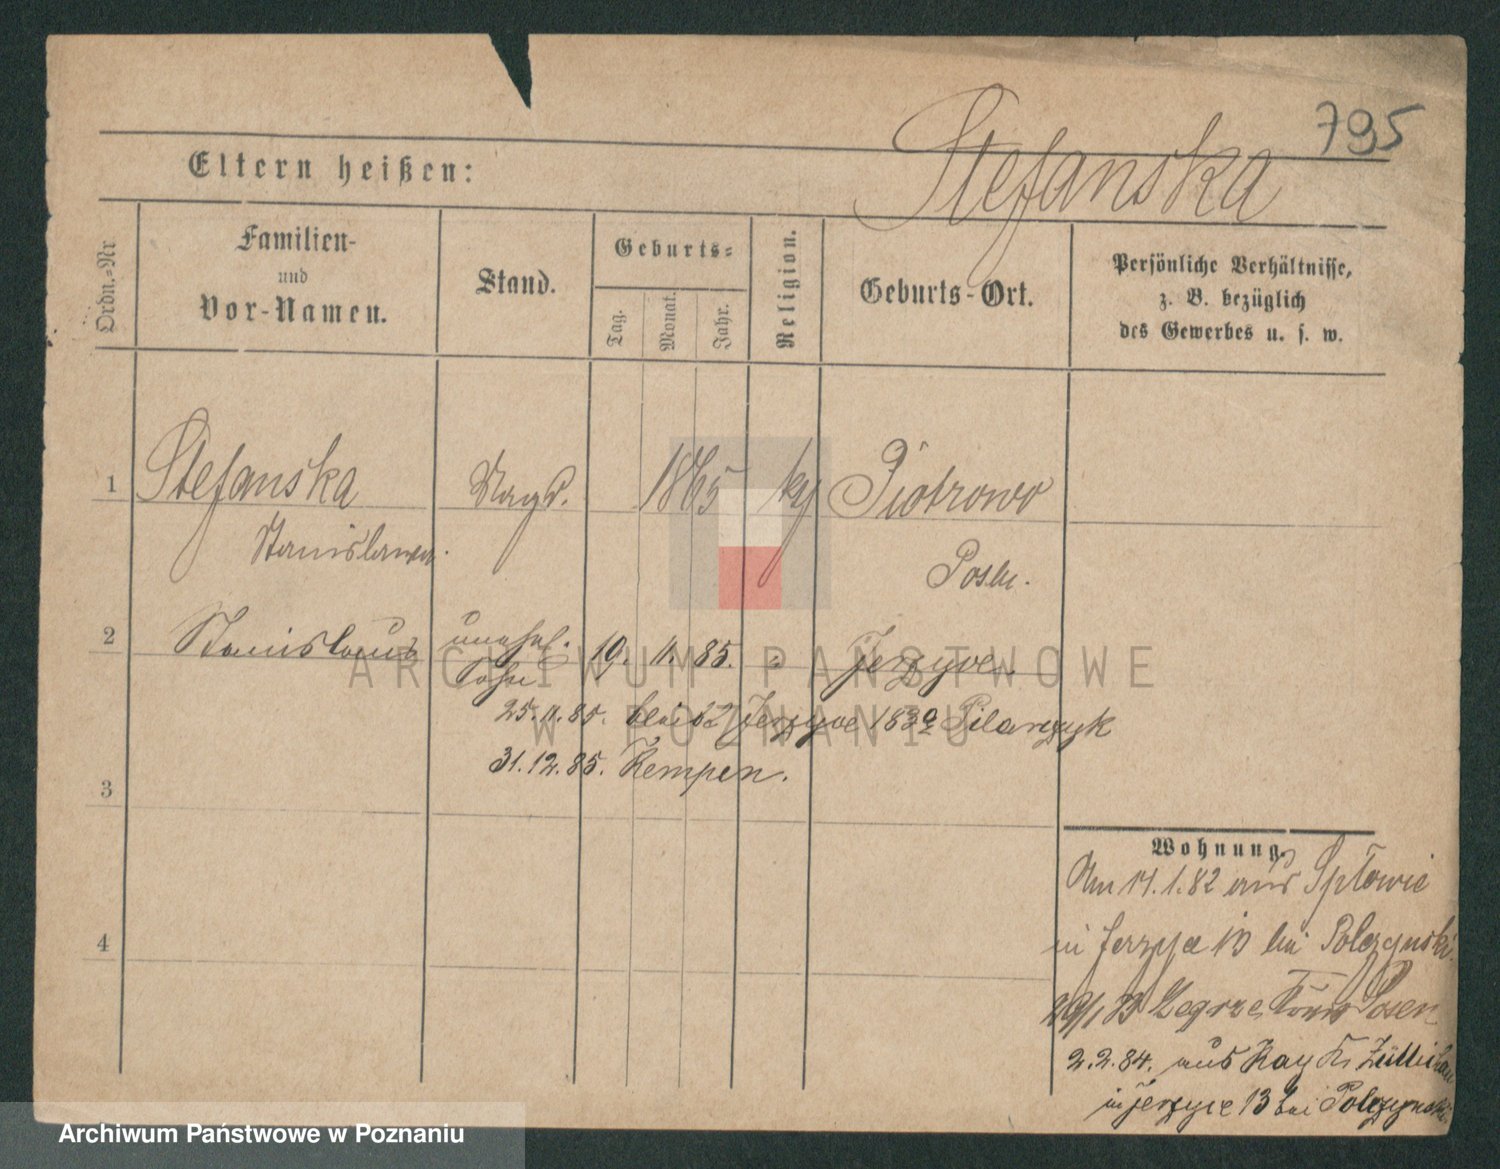 795
Stefanska
Eltern heißen:
Ordn.-Nr
Familien-
und
Vor-Namen.
Stand.
Geburts-
Tag.
Monat.
Jahr.
Religion.
Geburts-Ort.
Persönliche Verhältnisse,
z. B. bezüglich
des Gewerbes u. s. w.
1 Stefanska Magd. 1865 kg Piotrowo
Stanislawa. Posen.
2 Stanislaus unehel. 19. 11. 85. " Jerzyce.
Sohn
25.11.85. bleibt Jerzyce 183a Pilarczyk
31.12.85. Kempen.
3
4
Wohnung.
Am 14.1.82 aus
in Jerzyce 13 bei Polczynski.
Zegrze Posen
2.2.84. aus Kay Kr. Züllichau
in Jerzyce 13 bei Polczynski
ARCHIWUM PAŃSTWOWE
W POZNANIU
Archiwum Państwowe w Poznaniu